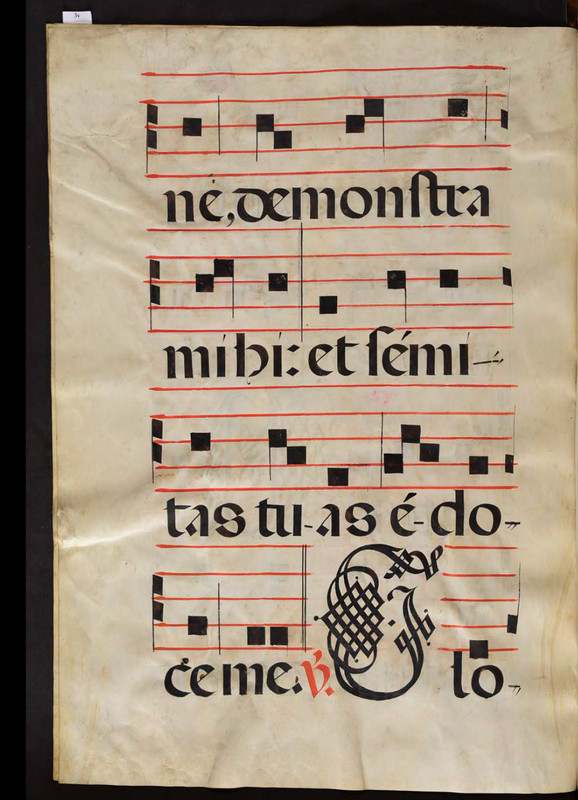 né, demonſtra
mihi: et ſémi-
tas tu-as é-do-
ce me. ℣. Glo-